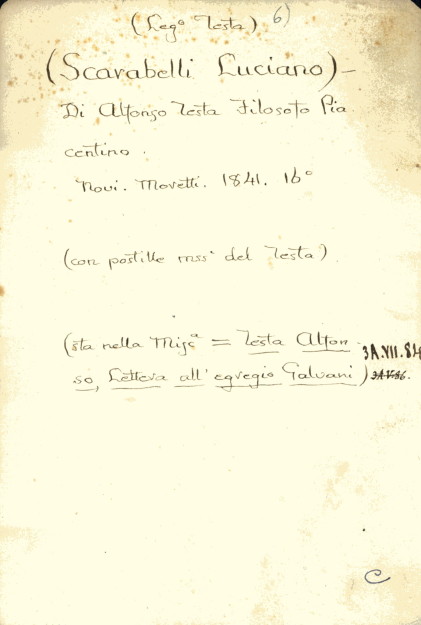 (Lego Testa) 6)
(Scarabelli Luciano)-
Di Alfonso Testa Filosofo Pia
centino.
Novi. Moretti. 1841. 16°
(con postille mssi del Testa)
(sta nella Miscª = Testa Alfon
so, Lettera all'egregio Galvani) 3A.VII.84
3A.V.36.
C